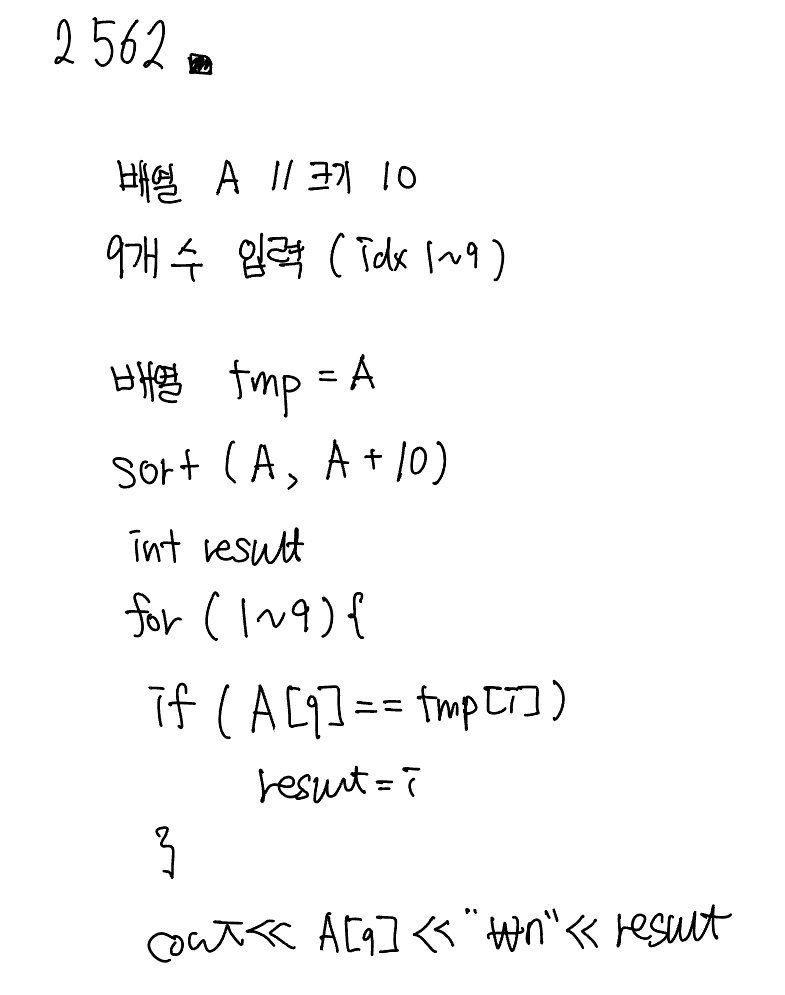 2562.
배열 A // 크기 10
9개 수 입력 ( idx 1~9 )
배열 tmp = A
sort ( A, A + 10 )
int result
for ( 1~9 ) {
if ( A[9] == tmp[i] )
result = i
}
cout << A[9] << "₩n" << result